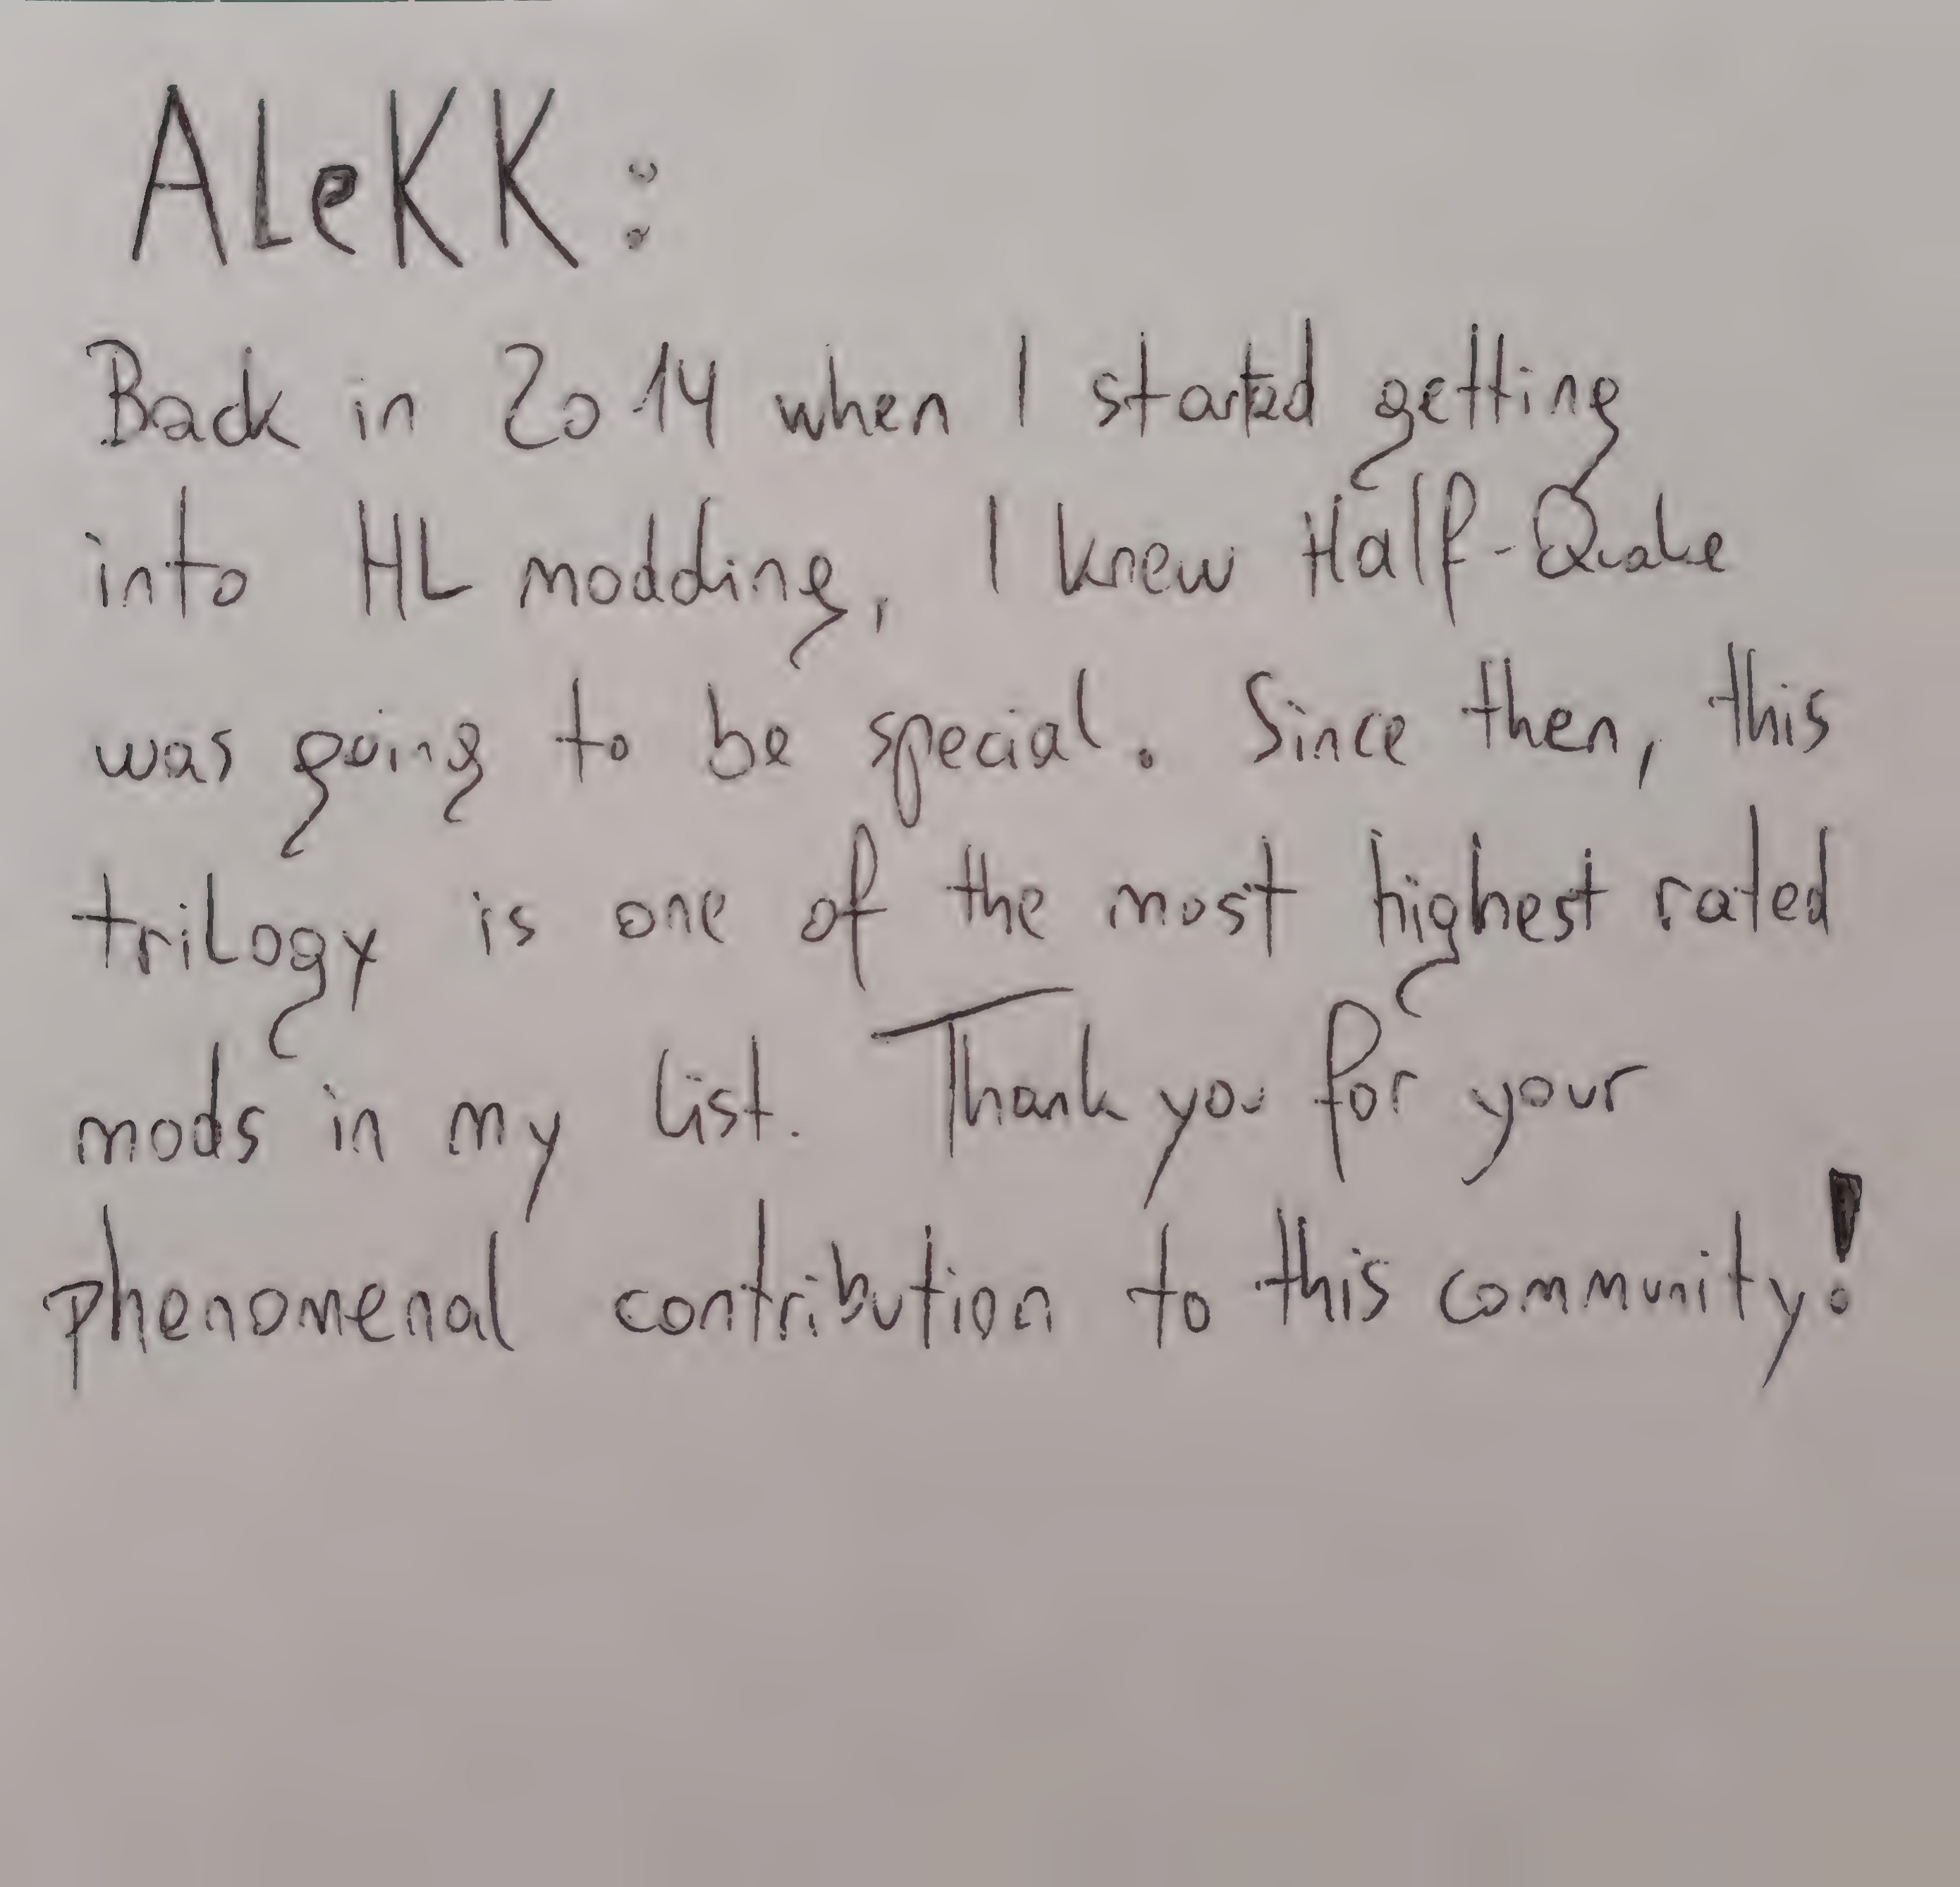 ALeKK:
Back in 2014 when I started getting
into HL modding, I knew Half-Quake
was going to be special. Since then, this
triLogy is one of the most highest rated
mods in my list. Thank you for your
phenomenal contribution to this community!